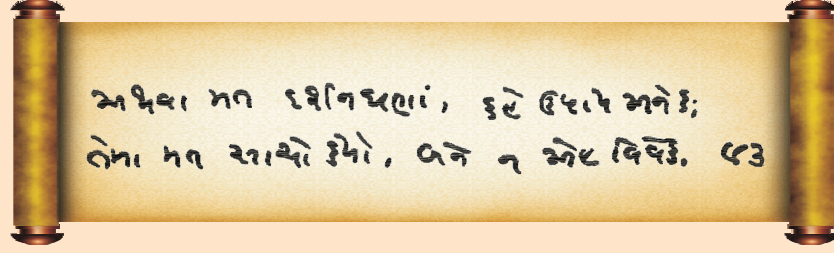 અથવા મત દર્શન ઘણાં, કહે ઉપાય અનેક;
તેમાં મત સાચો કયો, બને ન એહ વિવેક. ૯૩